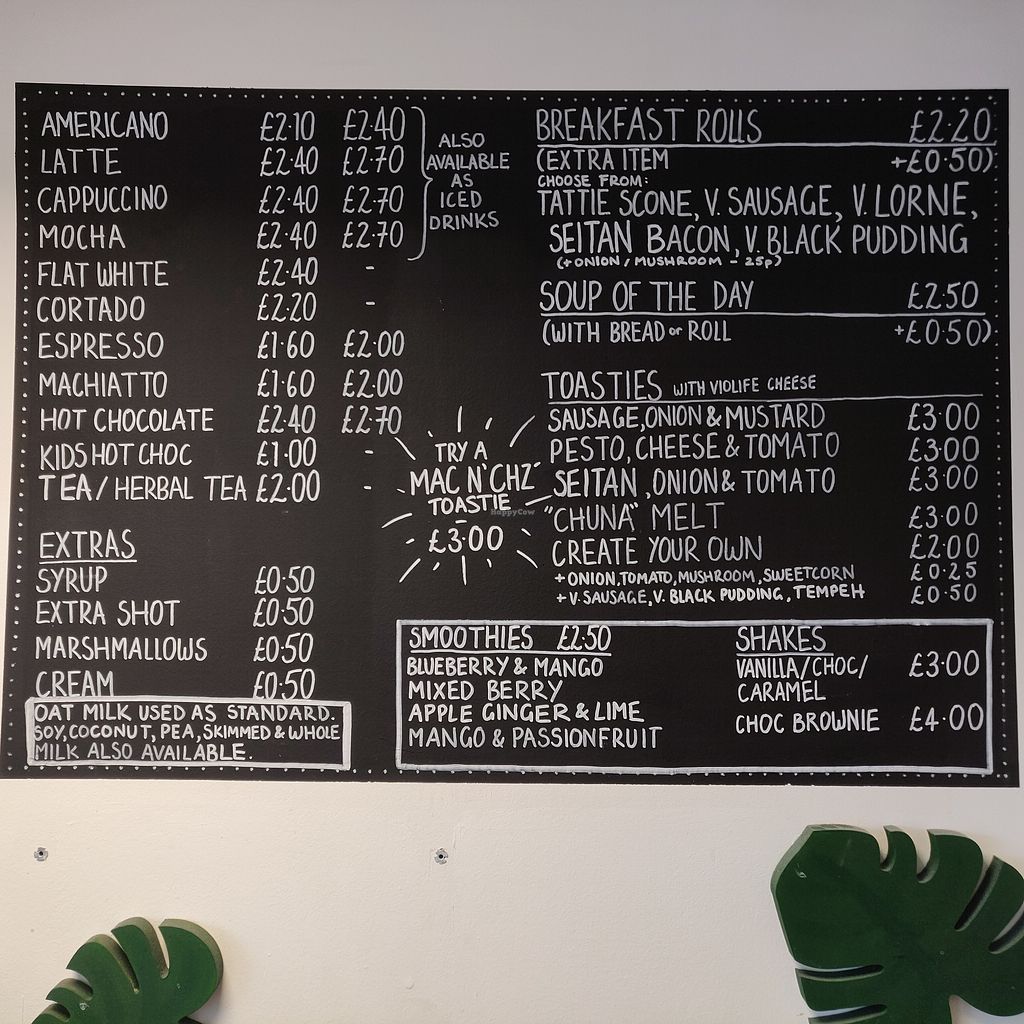 AMERICANO £2.10 £2.40
LATTE £2.40 £2.70
CAPPUCCINO £2.40 £2.70
MOCHA £2.40 £2.70
ALSO
AVAILABLE
AS
ICED
DRINKS
FLAT WHITE £2.40 -
CORTADO £2.20 -
ESPRESSO £1.60 £2.00
MACHIATTO £1.60 £2.00
HOT CHOCOLATE £2.40 £2.70
KIDS HOT CHOC £1.00 -
TEA / HERBAL TEA £2.00 -
EXTRAS
SYRUP £0.50
EXTRA SHOT £0.50
MARSHMALLOWS £0.50
CREAM £0.50
OAT MILK USED AS STANDARD.
SOY, COCONUT, PEA, SKIMMED & WHOLE
MILK ALSO AVAILABLE.
TRY A
MAC N' CHZ
TOASTIE
HappyCow
£3.00
BREAKFAST ROLLS £2.20
(EXTRA ITEM +£0.50)
CHOOSE FROM:
TATTIE SCONE, V. SAUSAGE, V. LORNE,
SEITAN BACON, V. BLACK PUDDING
(+ ONION / MUSHROOM - 25p)
SOUP OF THE DAY £2.50
(WITH BREAD or ROLL +£0.50)
TOASTIES WITH VIOLIFE CHEESE
SAUSAGE, ONION & MUSTARD £3.00
PESTO, CHEESE & TOMATO £3.00
SEITAN, ONION & TOMATO £3.00
"CHUNA" MELT £3.00
CREATE YOUR OWN £2.00
+ ONION, TOMATO, MUSHROOM, SWEETCORN £0.25
+ V. SAUSAGE, V. BLACK PUDDING, TEMPEH £0.50
SMOOTHIES £2.50
BLUEBERRY & MANGO
MIXED BERRY
APPLE GINGER & LIME
MANGO & PASSIONFRUIT
SHAKES
VANILLA / CHOC / £3.00
CARAMEL
CHOC BROWNIE £4.00